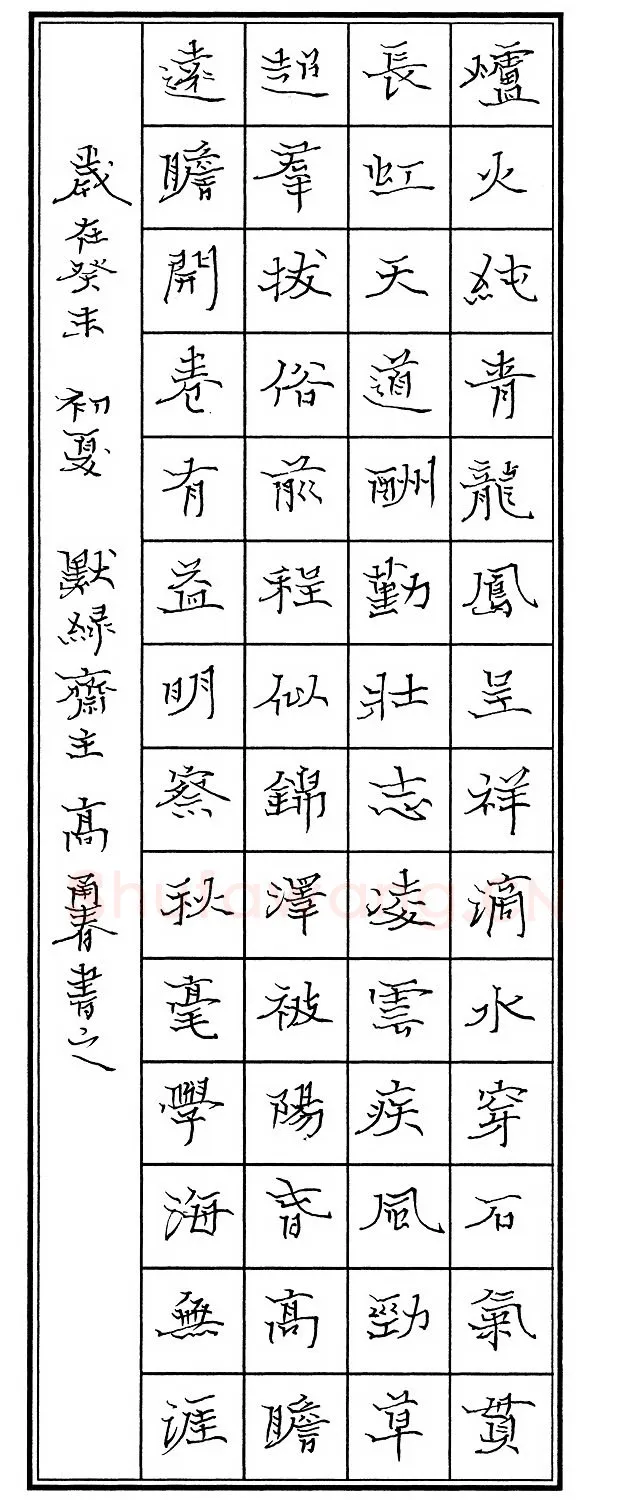 爐火純青龍鳳呈祥滴水穿石氣貫
長虹天道酬勤壯志凌雲疾風勁草
超羣拔俗前程似錦澤被陽春高瞻
遠瞻開卷有益明察秋毫學海無涯
歲在癸未 初夏 默緣齋主 高勇春書之